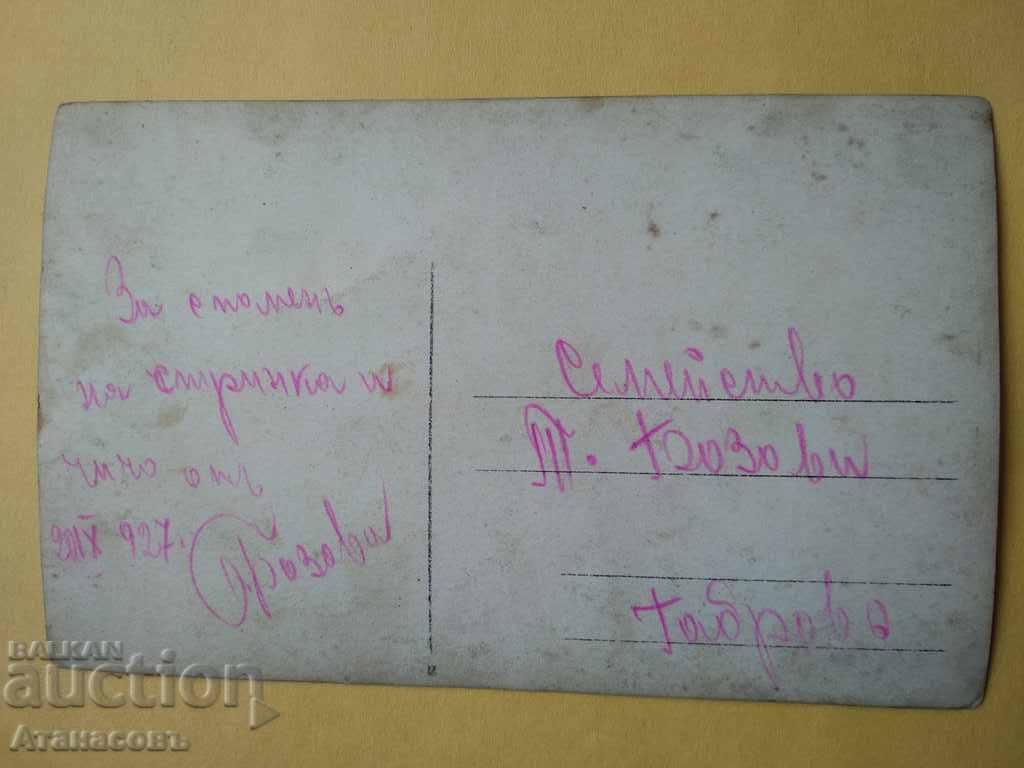 За споменъ
на стринка и
чичо отъ
927.
Семейство
Т. Бозови
Габрово
BALKAN
auction
Атанасовъ